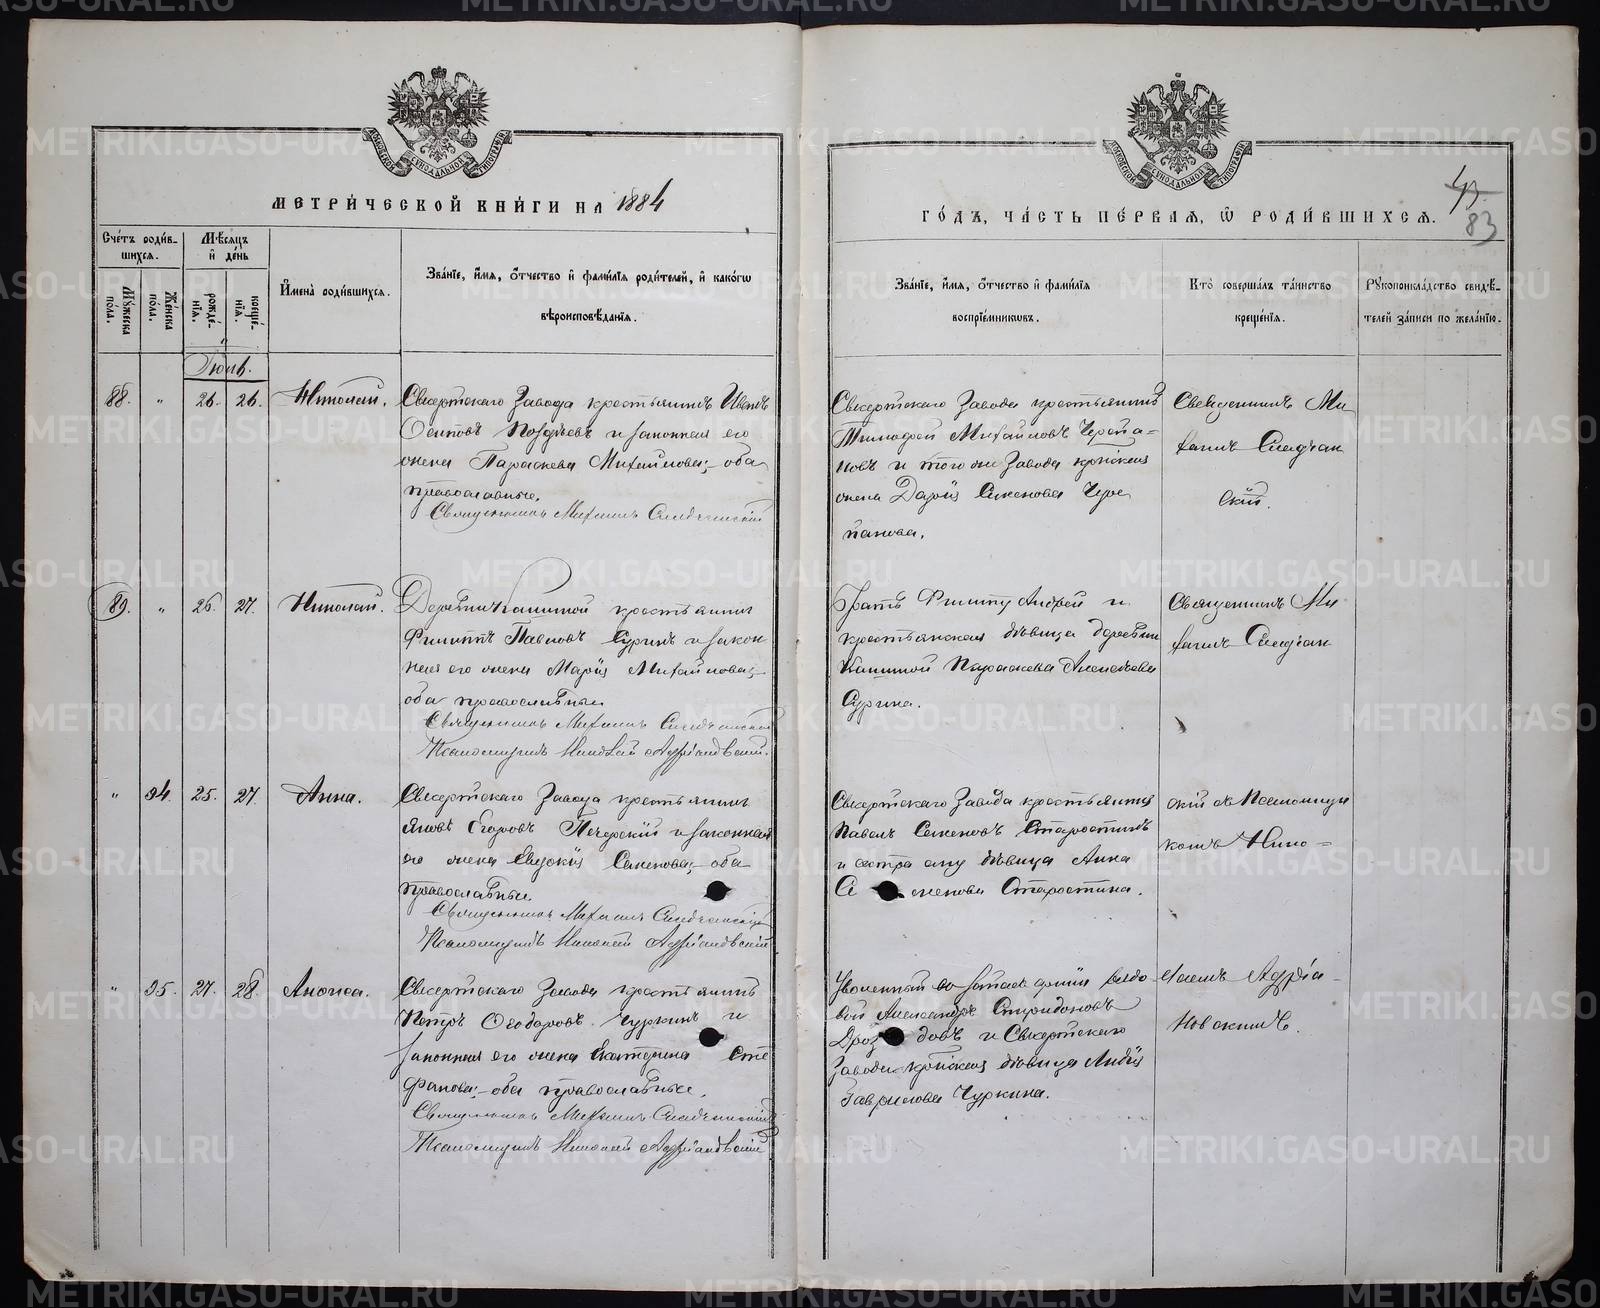 МЕТРИ́ЧЕСКОЙ КНИ́ГИ НА 1884
Сче́тъ роди́в-
шихсѧ.
Му́жеска
по́ла.
Же́нска
по́ла.
Мѣ́сяцъ
и де́нь
рожде́-
нїѧ.
креще́-
нїѧ.
И҆мена̀ роди́вшихсѧ.
Зва́нїе, и҆́мѧ, ѻ҆́тчество и҆ фами́лїѧ роди́телей, и҆ како́гѡ
вѣроисповѣ́данїѧ.
Іюнь.
88. " 26. 26. Николай.
Сысертскаго Завода крестьянинъ Иванъ
Осиповъ Поздѣевъ и законная его
жена Параскева Михайлова; оба
православные.
Священникъ Михаилъ
89. " 26. 27. Николай.
Деревни Кашиной крестьянинъ
Филиппъ Павловъ Суринъ и закон
ная его жена Марія Михайлова;
оба православные
Священникъ Михаилъ
Псаломщикъ Николай Адріановскій.
" 94. 25. 27. Анна.
Сысертскаго Завода крестьянинъ
Яковъ Егоровъ Печерскій и законная
его жена Евдокія Семенова; оба
православные.
Священникъ Михаилъ
Псаломщикъ Николай Адріановскій
" 95. 27. 28. Анфиса.
Сысертскаго Завода крестьянинъ
Петръ Ѳеодоровъ Чуркинъ и
законная его жена Екатерина Сте
фанова; оба православные.
Священникъ Михаилъ
Псаломщикъ Николай Адріановскій
ГО́ДЪ, ЧА́СТЬ ПЕ́РВАѦ, Ѡ҆ РОДИ́ВШИХСѦ.
83
Зва́нїе, и҆́мѧ, ѻ҆́тчество и҆ фами́лїѧ
воспрїе́мникѡвъ.
Кто̀ соверша́лъ та́инство
креще́нїѧ.
Рꙋкоприкла́дство свидѣ́-
телей за́писи по жела́нїю.
Сысертскаго Завода крестьянинъ
Тимофей Михайловъ Черепа-
новъ и того же Завода крестьянская
жена Дарія Семенова Чере
панова.
Священникъ Ми
хаилъ
скій.
братъ Филиппу Андрей и
крестьянская дѣвица деревни
Кашиной Параскева Алексѣева
Сурина.
Священникъ Ми
хаилъ
Сысертскаго Завода крестьянинъ
Павелъ Семеновъ Старостинъ
и сестра ему дѣвица Анна
Се меновa Старостина.
скій съ Псаломщи
комъ Нико-
Уволенный въ запасъ арміи рядо
вой Александръ Спиридоновъ
Дроз довъ и Сысертскаго
Завода крестьянская дѣвица Лидія
Гаврилова Чуркина.
лаемъ Адріа-
новскимъ.
МОСКОВСКОЙ СѴНОДАЛЬНОЙ ТИПОГРАФІИ
МОСКОВСКОЙ СѴНОДАЛЬНОЙ ТИПОГРАФІИ
METRIKI.GASO-URAL.RU